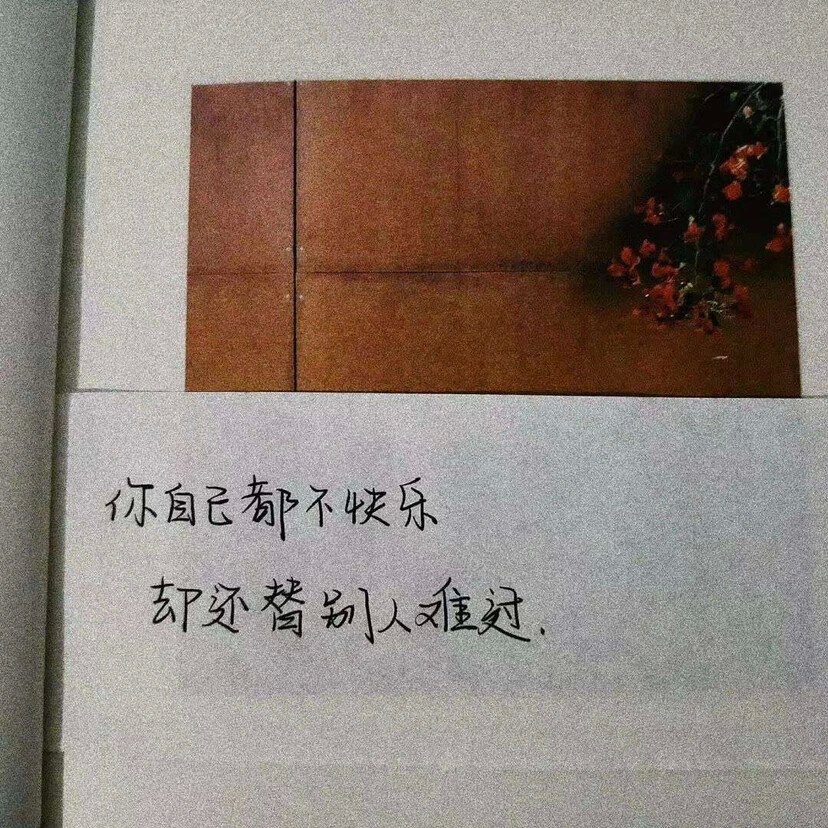 你自己都不快乐
却还替别人难过.